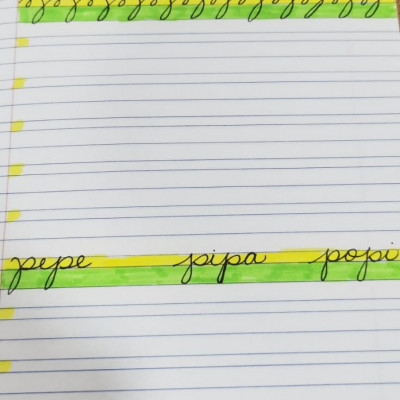 pepe pipa popi